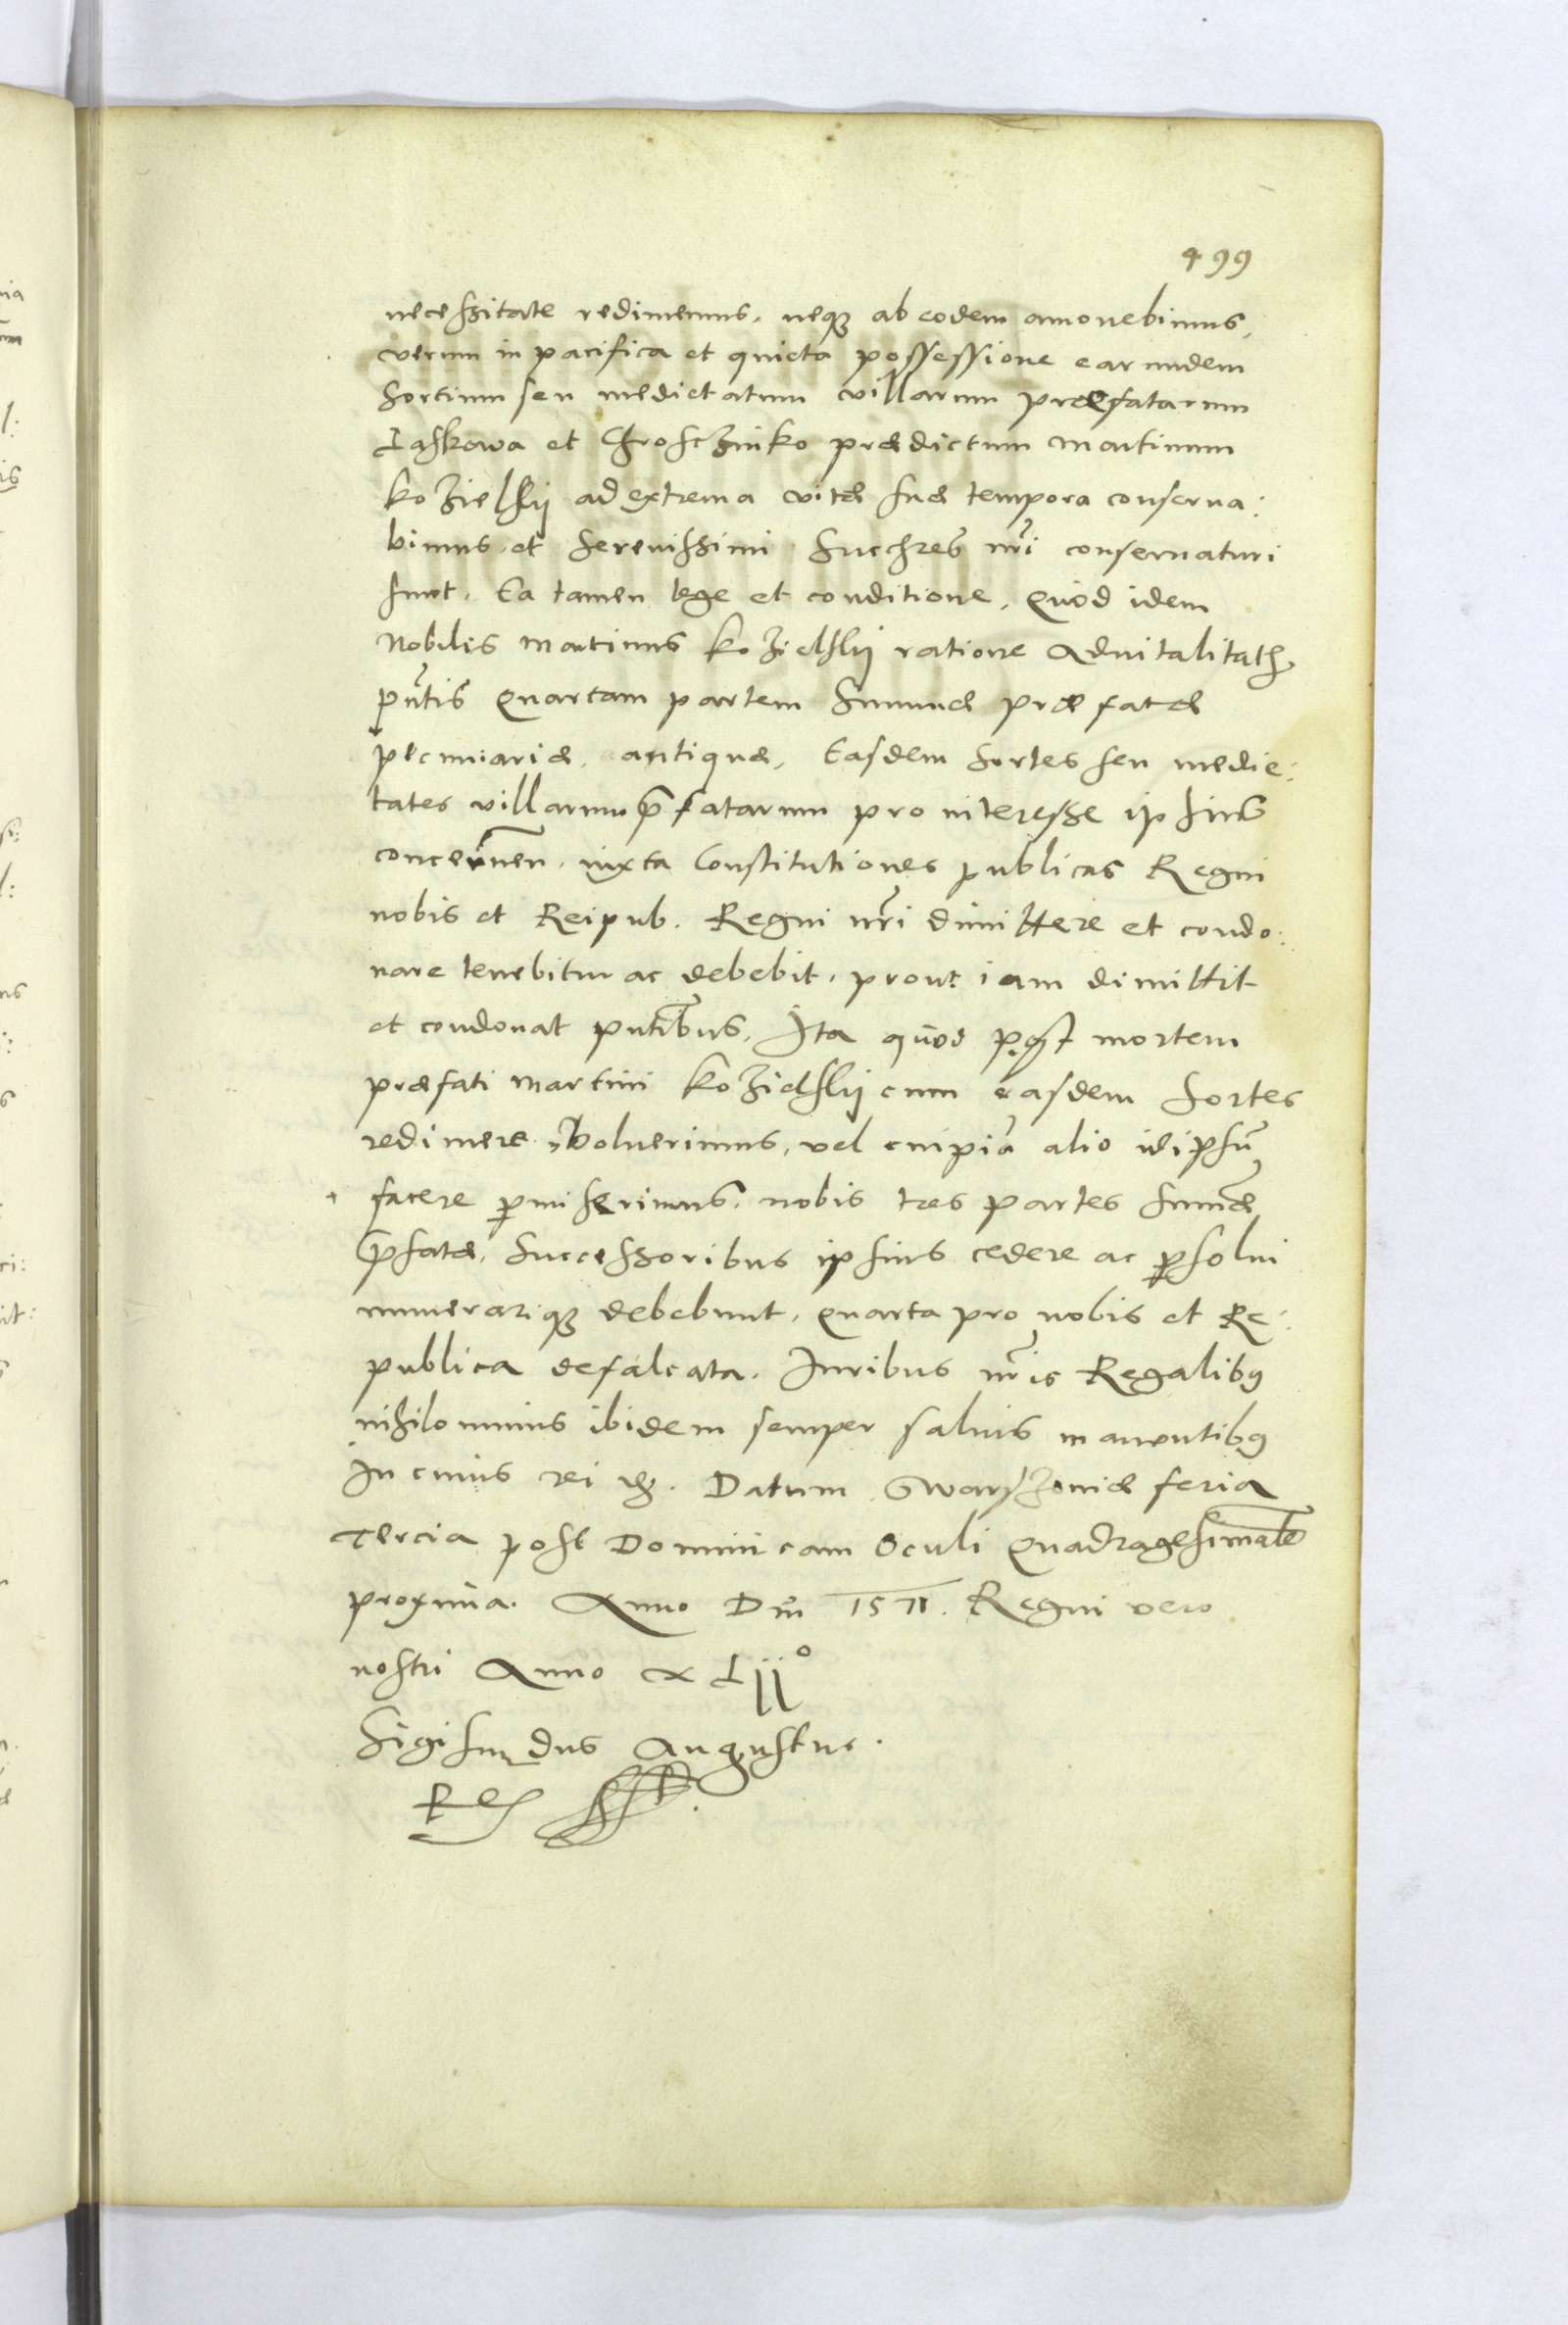 499
necessitate redimemus, neq3 ab eodem amouebimus,
verum in pacifica et quieta possessione earundem
Sortium seu medietatum villarum præfatarum
Laskowa et Chrosczinko prædictum Martinum
Kozielskij ad extrema vitæ suæ tempora conserua:
bimus, et Serenissimi Succhres nri conseruaturi
sunt. Ea tamen lege et conditione, Quod idem
Nobilis Martinus Kozielskij ratione Aduitalitatis
pntis Quartam partem Summæ præfatæ
pecuniariæ, antiquæ, Easdem Sortes seu medie:
tates villarum pfatarum pro interesse ipsius
concernen. iuxta Constitutiones publicas Regni
nobis et Reipub. Regni nri dimittere et condo:
nare tenebitur ac debebit, prout iam dimittit
et condonat pntibus, Ita quod post mortem
præfati Martini Kozielskij cum easdem Sortes
redimere voluerimus, vel cuipiã alio idipsũ
facere pmiserimus. nobis tres partes Sumæ
pfatæ, Successoribus ipsius cedere ac psolui
numerariq3 debebunt, Quarta pro nobis et Re:
publica defalcata. Iuribus nris Regalibus
nihilominus ibidem semper saluis manentibus
In cuius rei &. Datum Warszouiæ feria
Tercia post Dominicam Oculi Quadragesimale
proxima. Anno Dni 1571. Regni vero
nostri Anno XLIIº
Sigismundus Augustus.
Rex